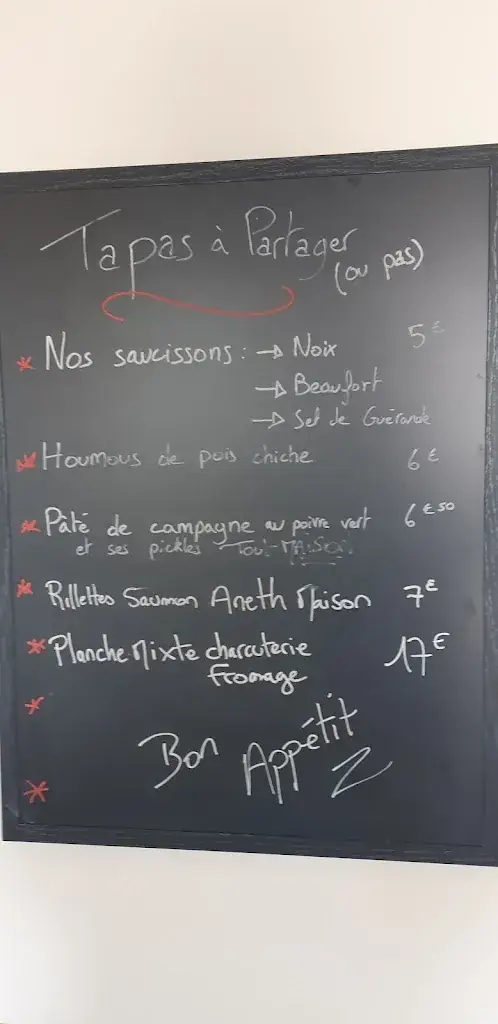 Tapas à Partager
(ou pas)
* Nos saucissons : → Noix 5€
→ Beaufort
→ Sel de Guérande
* Houmous de pois chiche 6€
* Pâté de campagne au poivre vert 6€50
et ses pickles TOUT-MAISON
* Rillettes Saumon Aneth Maison 7€
* Planche Mixte charcuterie 17€
fromage
*
Bon Appétit
*